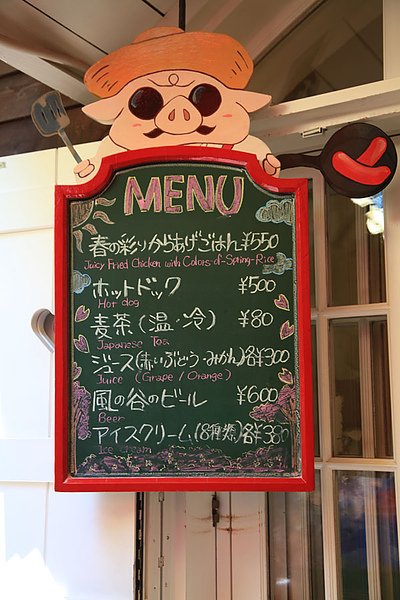 MENU
春の彩りからあげごはん ¥550
Juicy Fried Chicken with Colors-of-Spring-Rice
ホットドック ¥500
Hot dog
麦茶(温・冷) ¥80
Japanese Tea
ジュース(赤ぶどう・みかん)各¥300
Juice (Grape / Orange)
風の谷のビール ¥600
Beer
アイスクリーム(8種類)各¥380
Ice cream